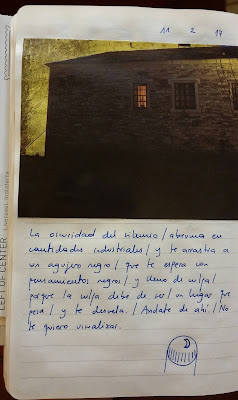 11 2 17
La oscuridad del silencio / abruma en
cantidades industriales / y te arrastra a
un agujero negro / que te espera con
pensamientos negros / y lleno de culpa /
porque la culpa debe de ser / un lugar que
pesa / y te desvela. / Andate de ahí. / No
te quiero visualizar.
LEFT OF CENTER